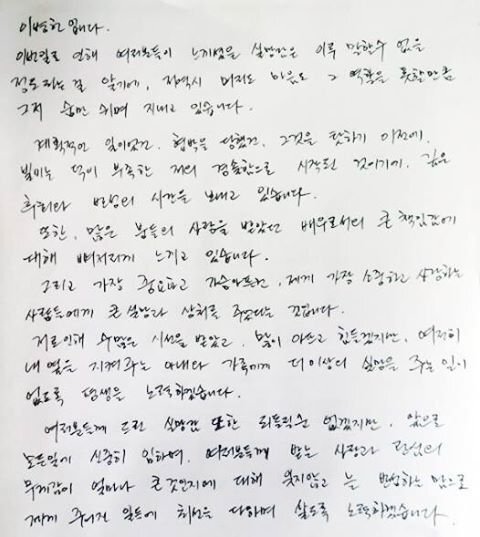 이병헌입니다.
이번일로 인해 여러분들이 느끼셨을 실망감은 이루 말할수 없을
정도라는걸 알기에, 저역시 머리도 마음도 그 역할을 못할만큼
그저 숨만 쉬며 지내고 있습니다.
계획적인 일이었건, 협박을 당했건, 그것을 탓하기 이전에,
빌미는 덕이 부족한 저의 경솔함으로 시작된 것이기에, 깊은
후회와 반성의 시간을 보내고 있습니다.
또한, 많은 분들의 사랑을 받았던 배우로서의 큰 책임감에
대해 뼈저리게 느끼고 있습니다.
그리고 가장 중요하고 가슴아픈건, 제게 가장 소중하고 사랑하는
사람들에게 큰 실망과 상처를 주었다는 겁니다.
저로인해 수많은 시선을 받았고, 많이 아프고 힘들겠지만, 여전히
내 옆을 지켜주는 아내와 가족에게 더이상의 실망을 주는 일이
없도록 평생을 노력하겠습니다.
여러분들께 드린 실망감 또한 되돌릴순 없겠지만, 앞으로
모든일에 신중히 임하며, 여러분들께 받는 사랑과 관심의
무게감이 얼마나 큰것인지에 대해 잊지않고 늘 반성하는 맘으로
제게 주어진 일들에 최선을 다하며 살도록 노력하겠습니다.